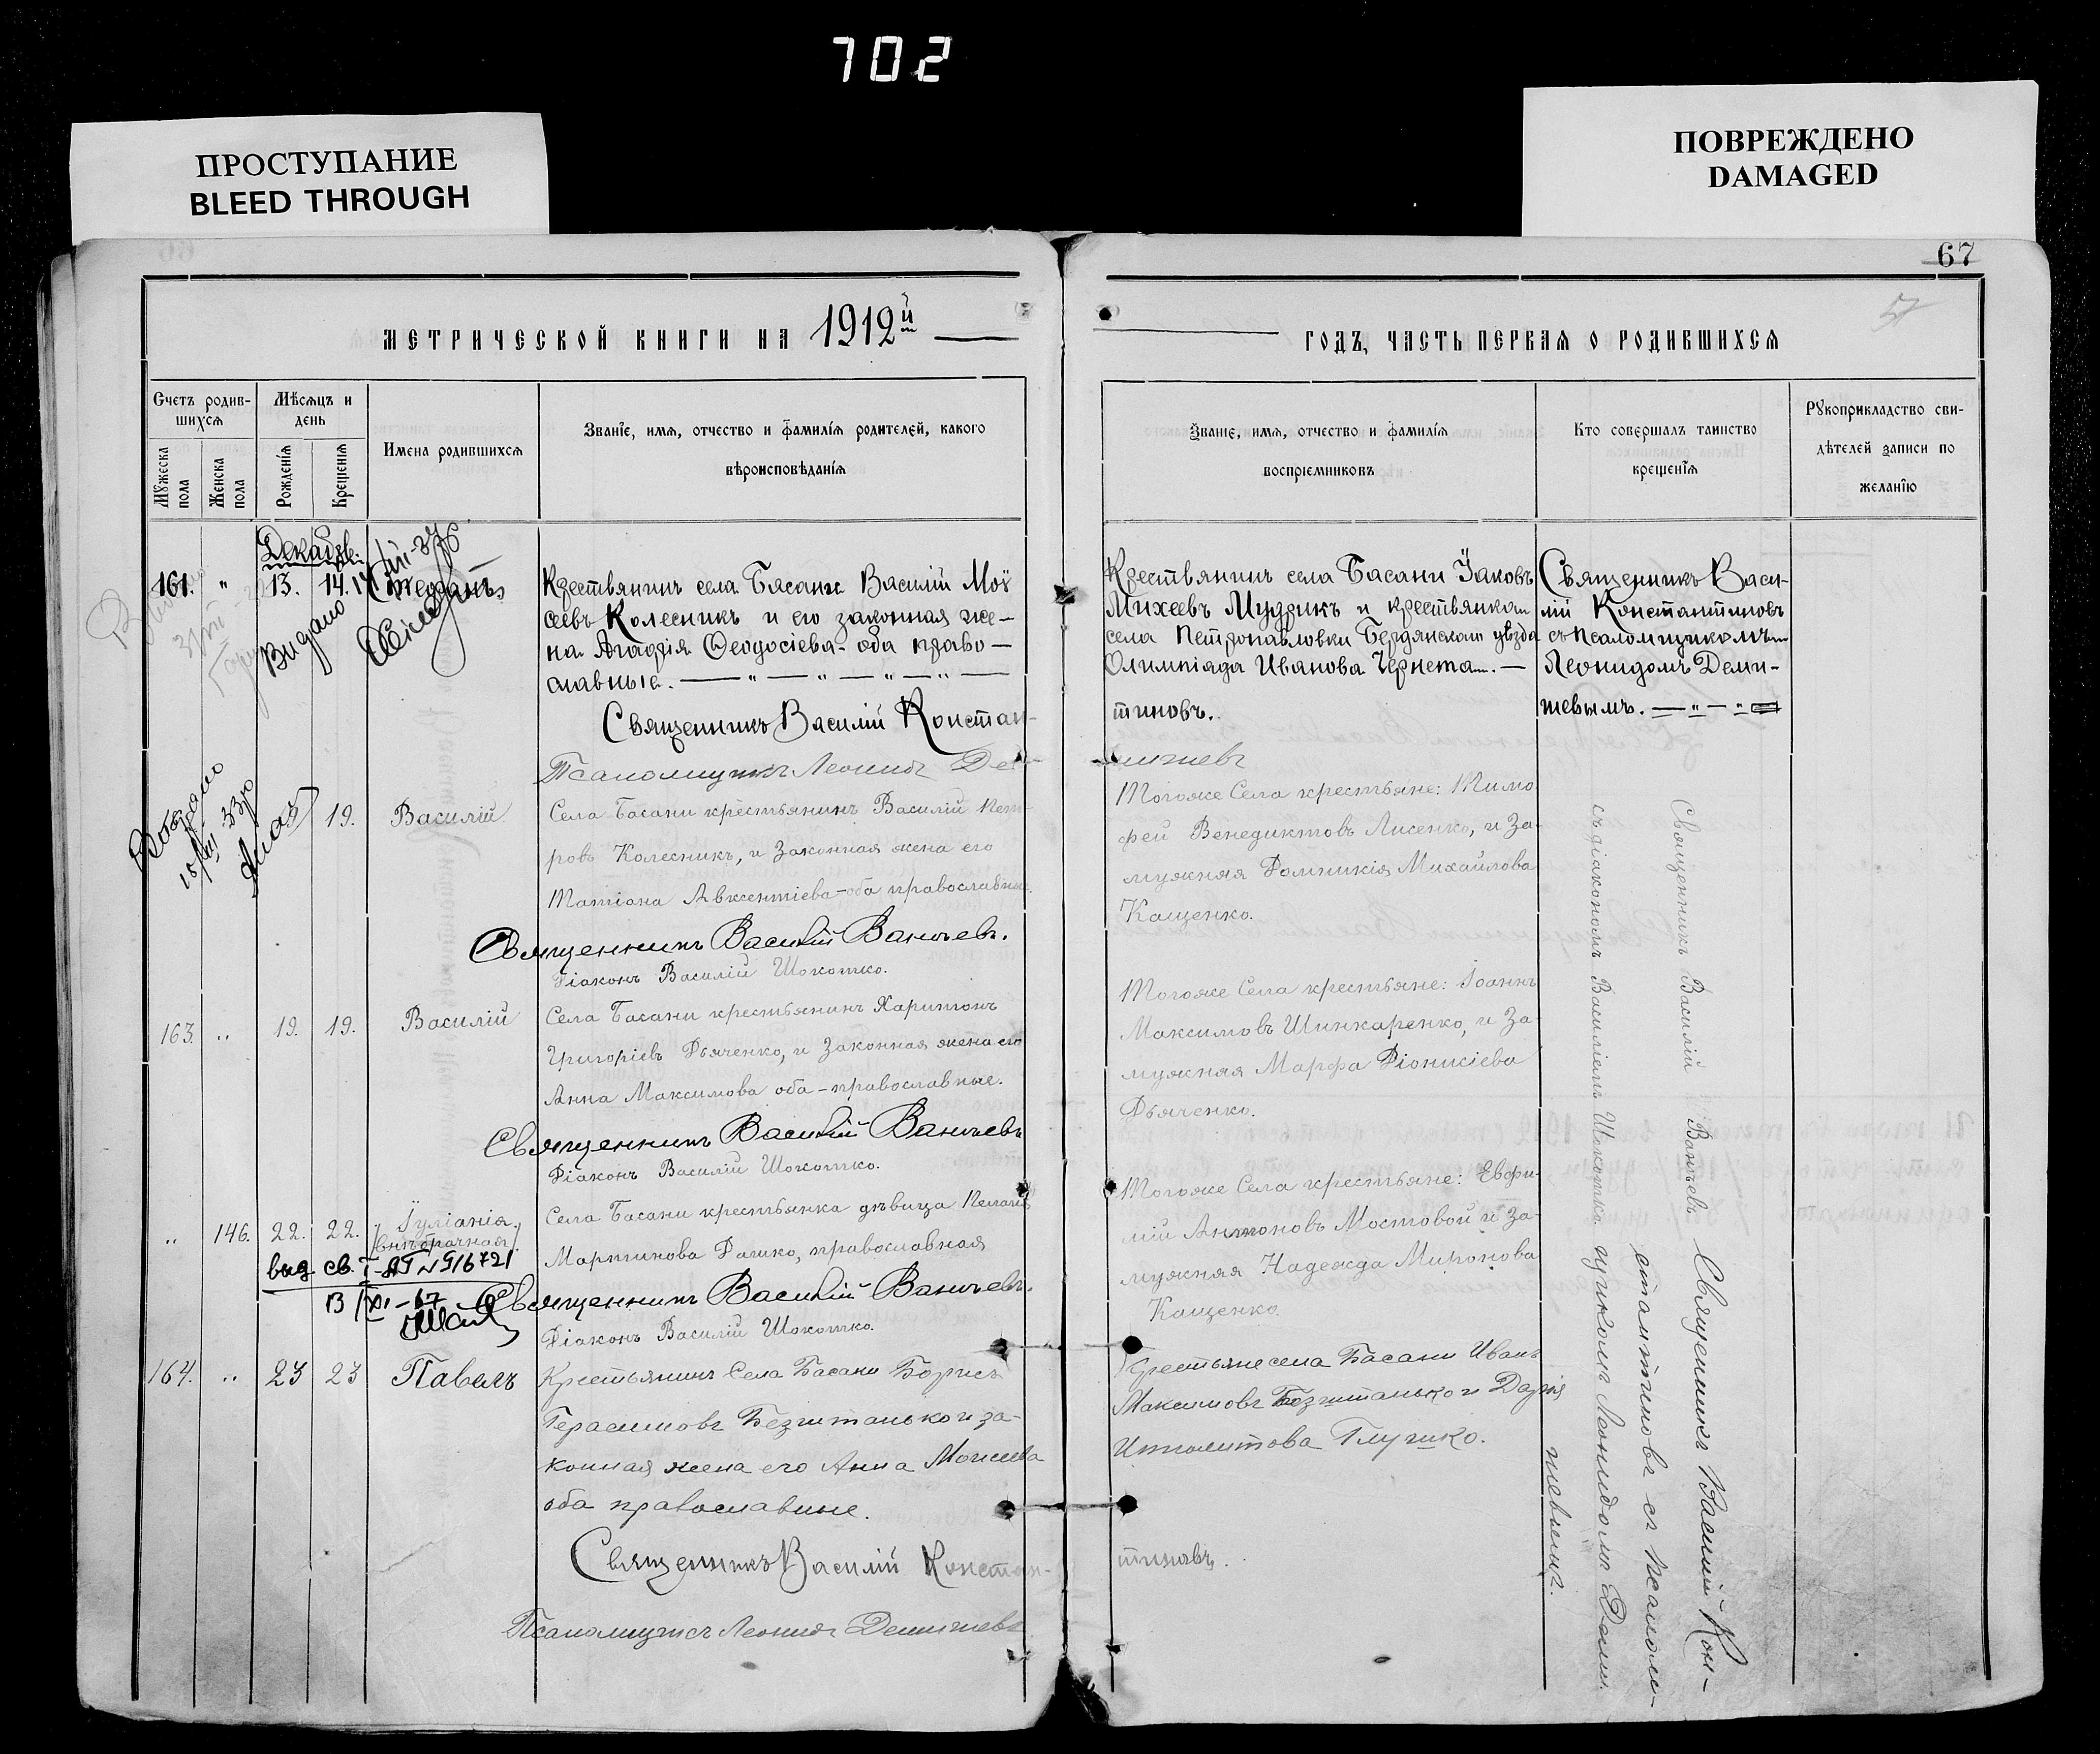 702
ПРОСТУПАНИЕ
BLEED THROUGH
ПОВРЕЖДЕНО
DAMAGED
67
57
МЕТРИЧЕСКОЙ КНИГИ НА 1912й
ГОДЪ, ЧАСТЬ ПЕРВАЯ О РОДИВШИХСЯ
Счетъ родив-
шихся
Мѣсяцъ и
день
Мужеска
пола
Женска
пола
Рожденія
Крещенія
Имена родившихся
Званіе, имя, отчество и фамилія родителей, какого
вѣроисповѣданія
Званіе, имя, отчество и фамилія
воспріемниковъ
Кто совершалъ таинство
крещенія
Рукоприкладство сви-
дѣтелей записи по
желанію
161. " 13. 14. Стефанъ
Видано
Крестьянинъ села Басани Василій Мои
сеевъ Колесникъ и его законная же-
на Агафія Феодосіева - оба право-
славные. — " — " — " — " —
Священникъ Василій Констан-
тиновъ.
Крестьянинъ села Басани Іаковъ
Михеевъ Мудрикъ и крестьянка
села Петропавловки Бердянскаго уѣзда
Олимпіада Иванова Чернета. —
Священникъ Васи-
лій Константиновъ
съ псаломщикомъ
Леонидомъ Деми-
шевымъ. — " — "
Псаломщикъ Леонидъ Демишевъ
19. Василій
Села Басани крестьянинъ Василій Пет-
ровъ Колесникъ, и Законная жена его
Татіана Авксентіева - оба православные.
Священникъ Василій Ваничевъ.
Діаконъ Василій Шокотко.
Тогоже Села крестьяне: Тимо
фей Венедиктовъ Лисенко, и За-
мужняя Домникія Михайлова
Кащенко.
163. " 19. 19. Василій
Села Басани крестьянинъ Харитонъ
Григоріевъ Дьяченко, и Законная жена его
Анна Максимова оба - православные.
Священникъ Василій Ваничевъ
Діаконъ Василій Шокотко.
Тогоже Села крестьяне: Іоаннъ
Максимовъ Шинкаренко, и За-
мужняя Марфа Діонисіева
Дьяченко.
" 146. 22. 22. Іуліанія
/внѣбрачная/.
Села Басани крестьянка дѣвица Пелагія
Мартинова Дашко, православная
Священникъ Василій Ваничевъ.
Діаконъ Василій Шокотко.
Тогоже Села крестьяне: Евфи-
мій Антоновъ Мостовой и За-
мужняя Надежда Миронова
Кащенко
164. " 23 23 Павелъ
Крестьянинъ Села Басани Борисъ
Герасимовъ Безштанько и за-
конная жена его Анна Моисеева
оба православные.
Священникъ Василій Констан-
тиновъ.
Псаломщикъ Леонидъ Демишевъ
Крестьяне села Басани Иванъ
Максимовъ Безштанько и Дарія
Ипполитова Глушко.
Священникъ Василій Ваничевъ
съ діакономъ Василіемъ Шокотко
Священникъ Василій Кон-
стантиновъ съ псалом-
щикомъ Леонидомъ Деми-
шевымъ.